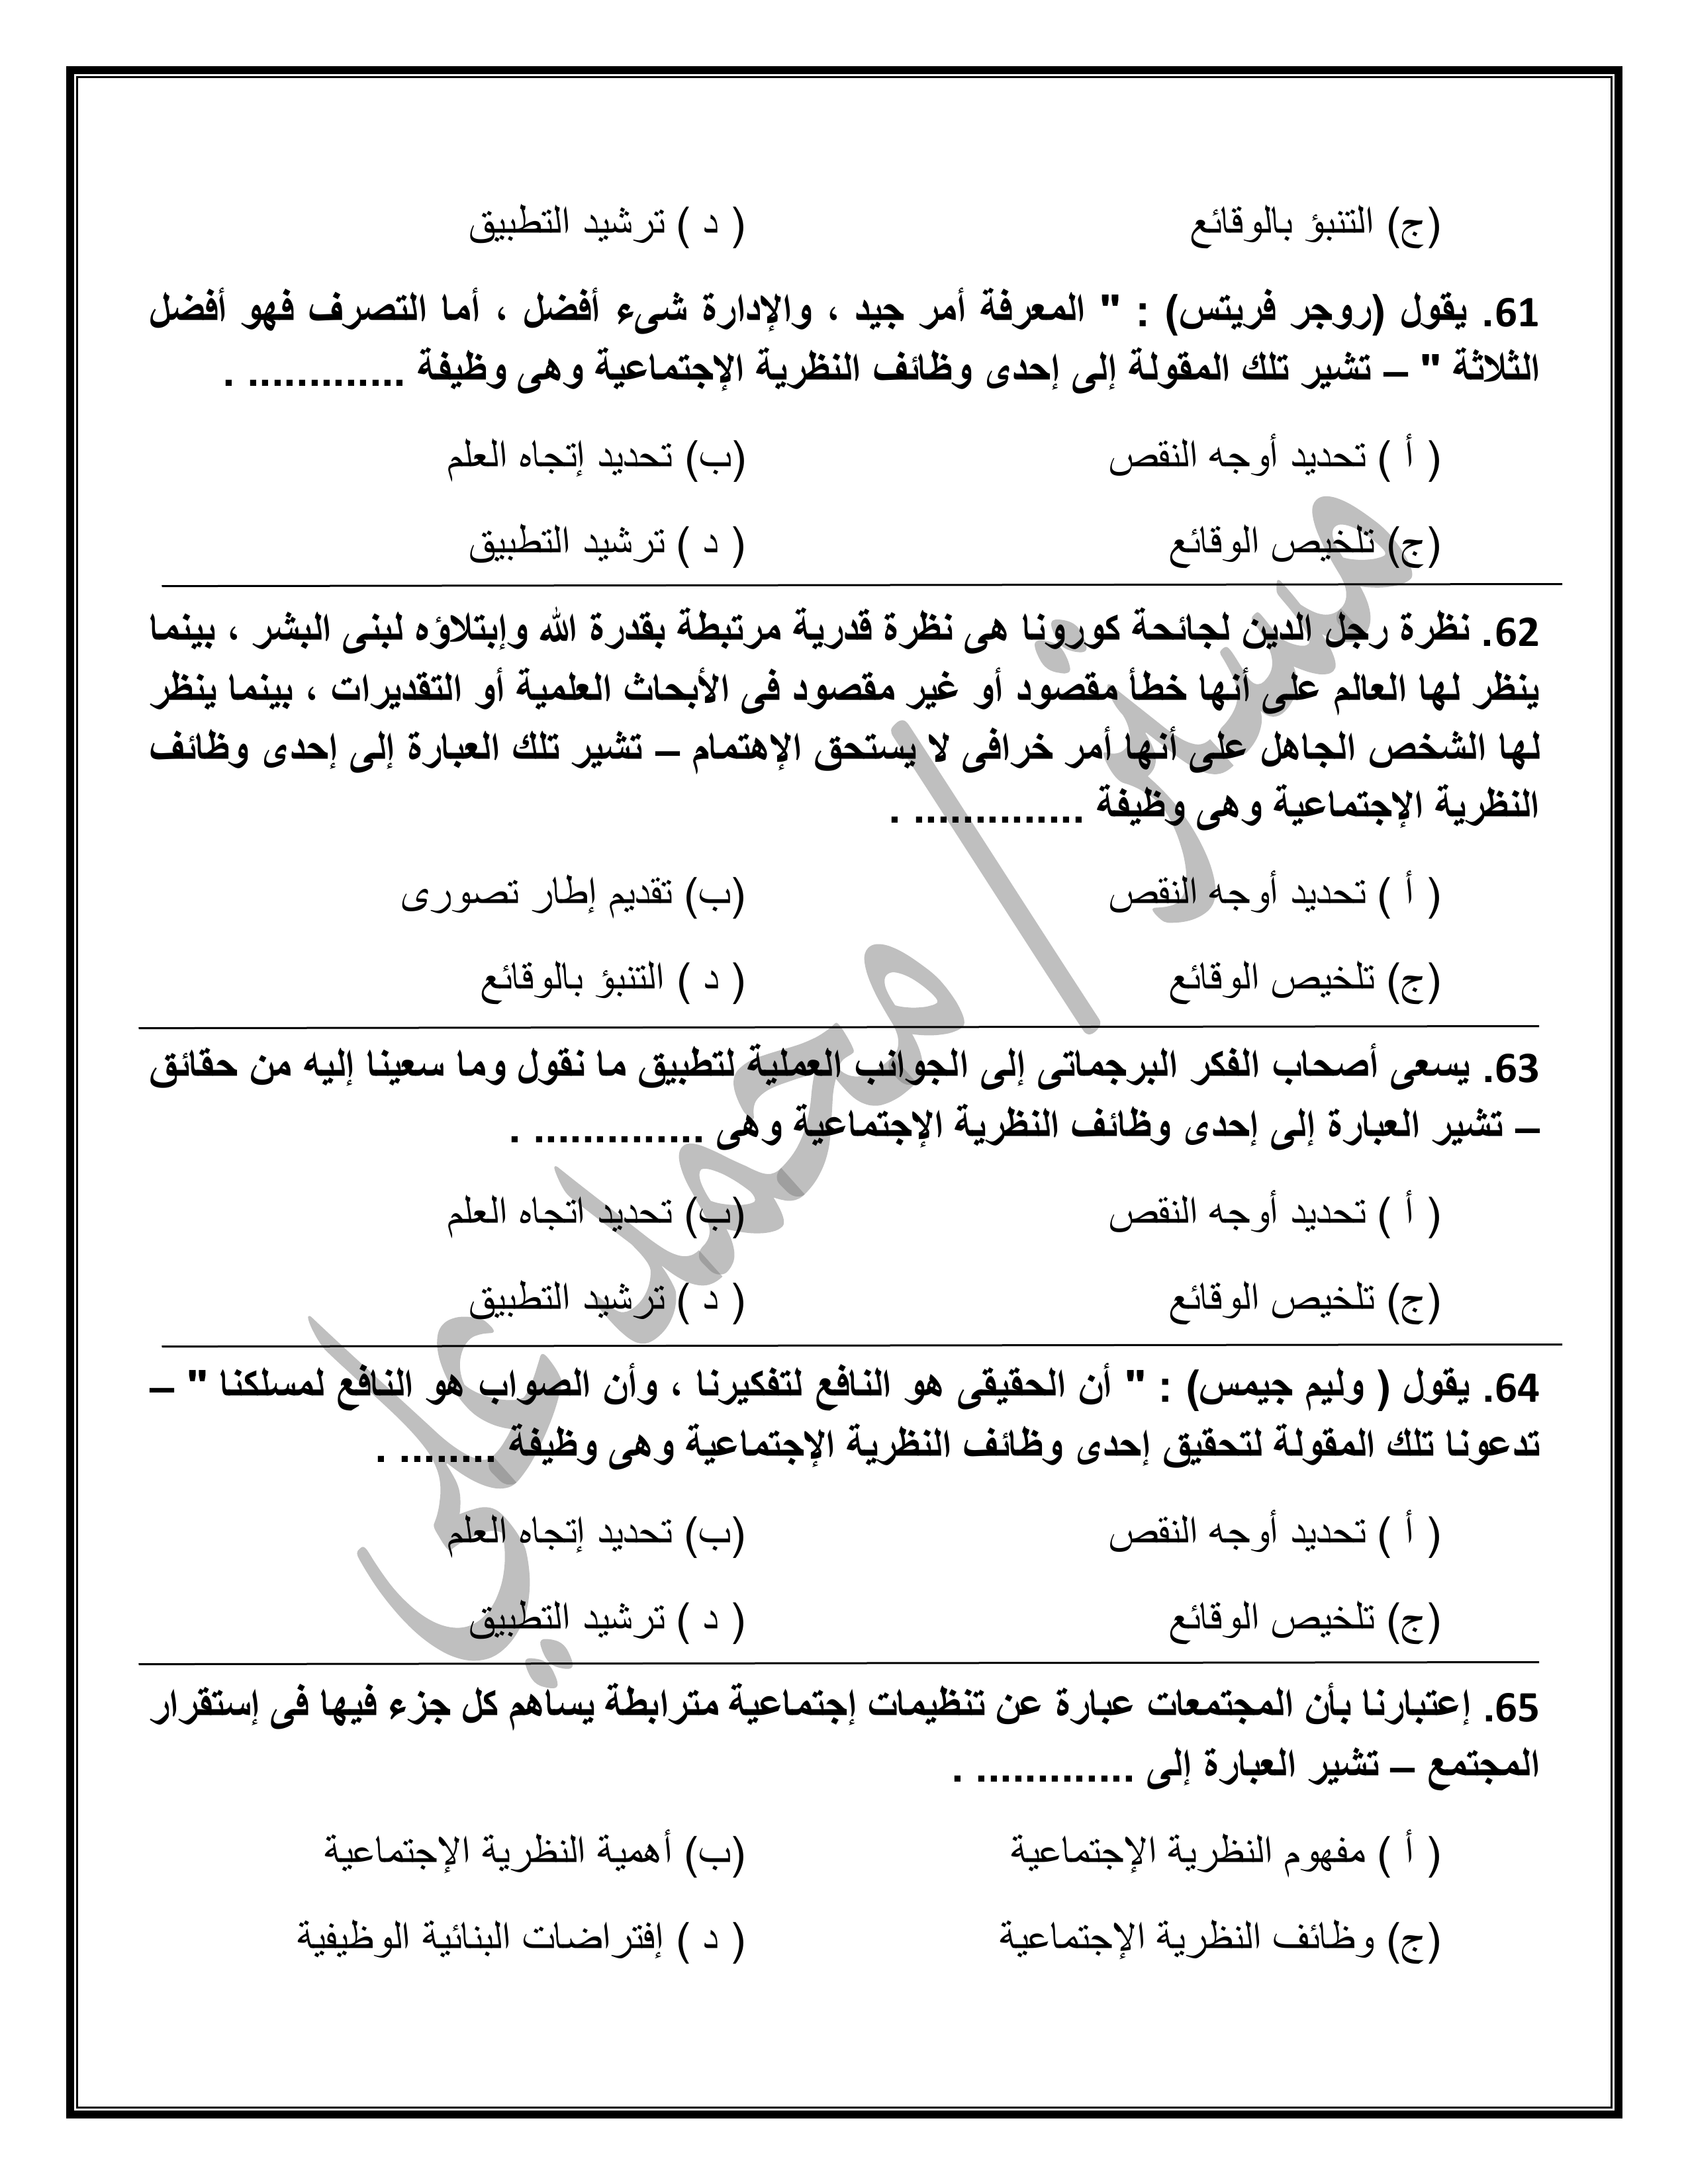 (ج) التنبؤ بالوقائع ( د ) ترشيد التطبيق
61. يقول (روجر فريتس) : " المعرفة أمر جيد ، والإدارة شىء أفضل ، أما التصرف فهو أفضل
الثلاثة " – تشير تلك المقولة إلى إحدى وظائف النظرية الإجتماعية وهى وظيفة ............. .
( أ ) تحديد أوجه النقص (ب) تحديد إتجاه العلم
(ج) تلخيص الوقائع ( د ) ترشيد التطبيق
62. نظرة رجل الدين لجائحة كورونا هى نظرة قدرية مرتبطة بقدرة الله وإبتلاؤه لبنى البشر ، بينما
ينظر لها العالم على أنها خطأ مقصود أو غير مقصود فى الأبحاث العلمية أو التقديرات ، بينما ينظر
لها الشخص الجاهل على أنها أمر خرافى لا يستحق الإهتمام – تشير تلك العبارة إلى إحدى وظائف
النظرية الإجتماعية وهى وظيفة .............. .
( أ ) تحديد أوجه النقص (ب) تقديم إطار تصورى
(ج) تلخيص الوقائع ( د ) التنبؤ بالوقائع
63. يسعى أصحاب الفكر البرجماتى إلى الجوانب العملية لتطبيق ما نقول وما سعينا إليه من حقائق
– تشير العبارة إلى إحدى وظائف النظرية الإجتماعية وهى .............. .
( أ ) تحديد أوجه النقص (ب) تحديد اتجاه العلم
(ج) تلخيص الوقائع ( د ) ترشيد التطبيق
64. يقول ( وليم جيمس) : " أن الحقيقى هو النافع لتفكيرنا ، وأن الصواب هو النافع لمسلكنا " –
تدعونا تلك المقولة لتحقيق إحدى وظائف النظرية الإجتماعية وهى وظيفة ........ .
( أ ) تحديد أوجه النقص (ب) تحديد إتجاه العلم
(ج) تلخيص الوقائع ( د ) ترشيد التطبيق
65. إعتبارنا بأن المجتمعات عبارة عن تنظيمات إجتماعية مترابطة يساهم كل جزء فيها فى إستقرار
المجتمع – تشير العبارة إلى ............. .
( أ ) مفهوم النظرية الإجتماعية (ب) أهمية النظرية الإجتماعية
(ج) وظائف النظرية الإجتماعية ( د ) إفتراضات البنائية الوظيفية
مستر / محمد علي